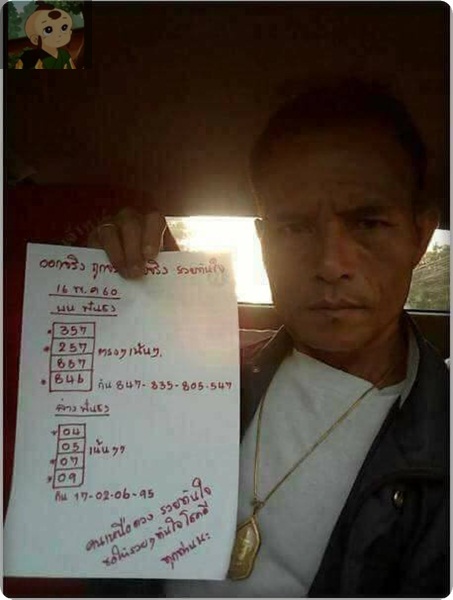 ออกจริง ถูกจริง รวยทันใจ
16 พ.ค 60
บน ฟันธง
357
257 ตรงๆ เน้นๆ
857
846
กัน 847-835-805-547
ล่าง ฟันธง
04
05 เน้นๆ
07
09
กัน 17-02-06-95
คนเหนือดวง รวยทันใจ
ขอให้รวยๆ ทันใจ โชคดี
ทุกท่านนะ